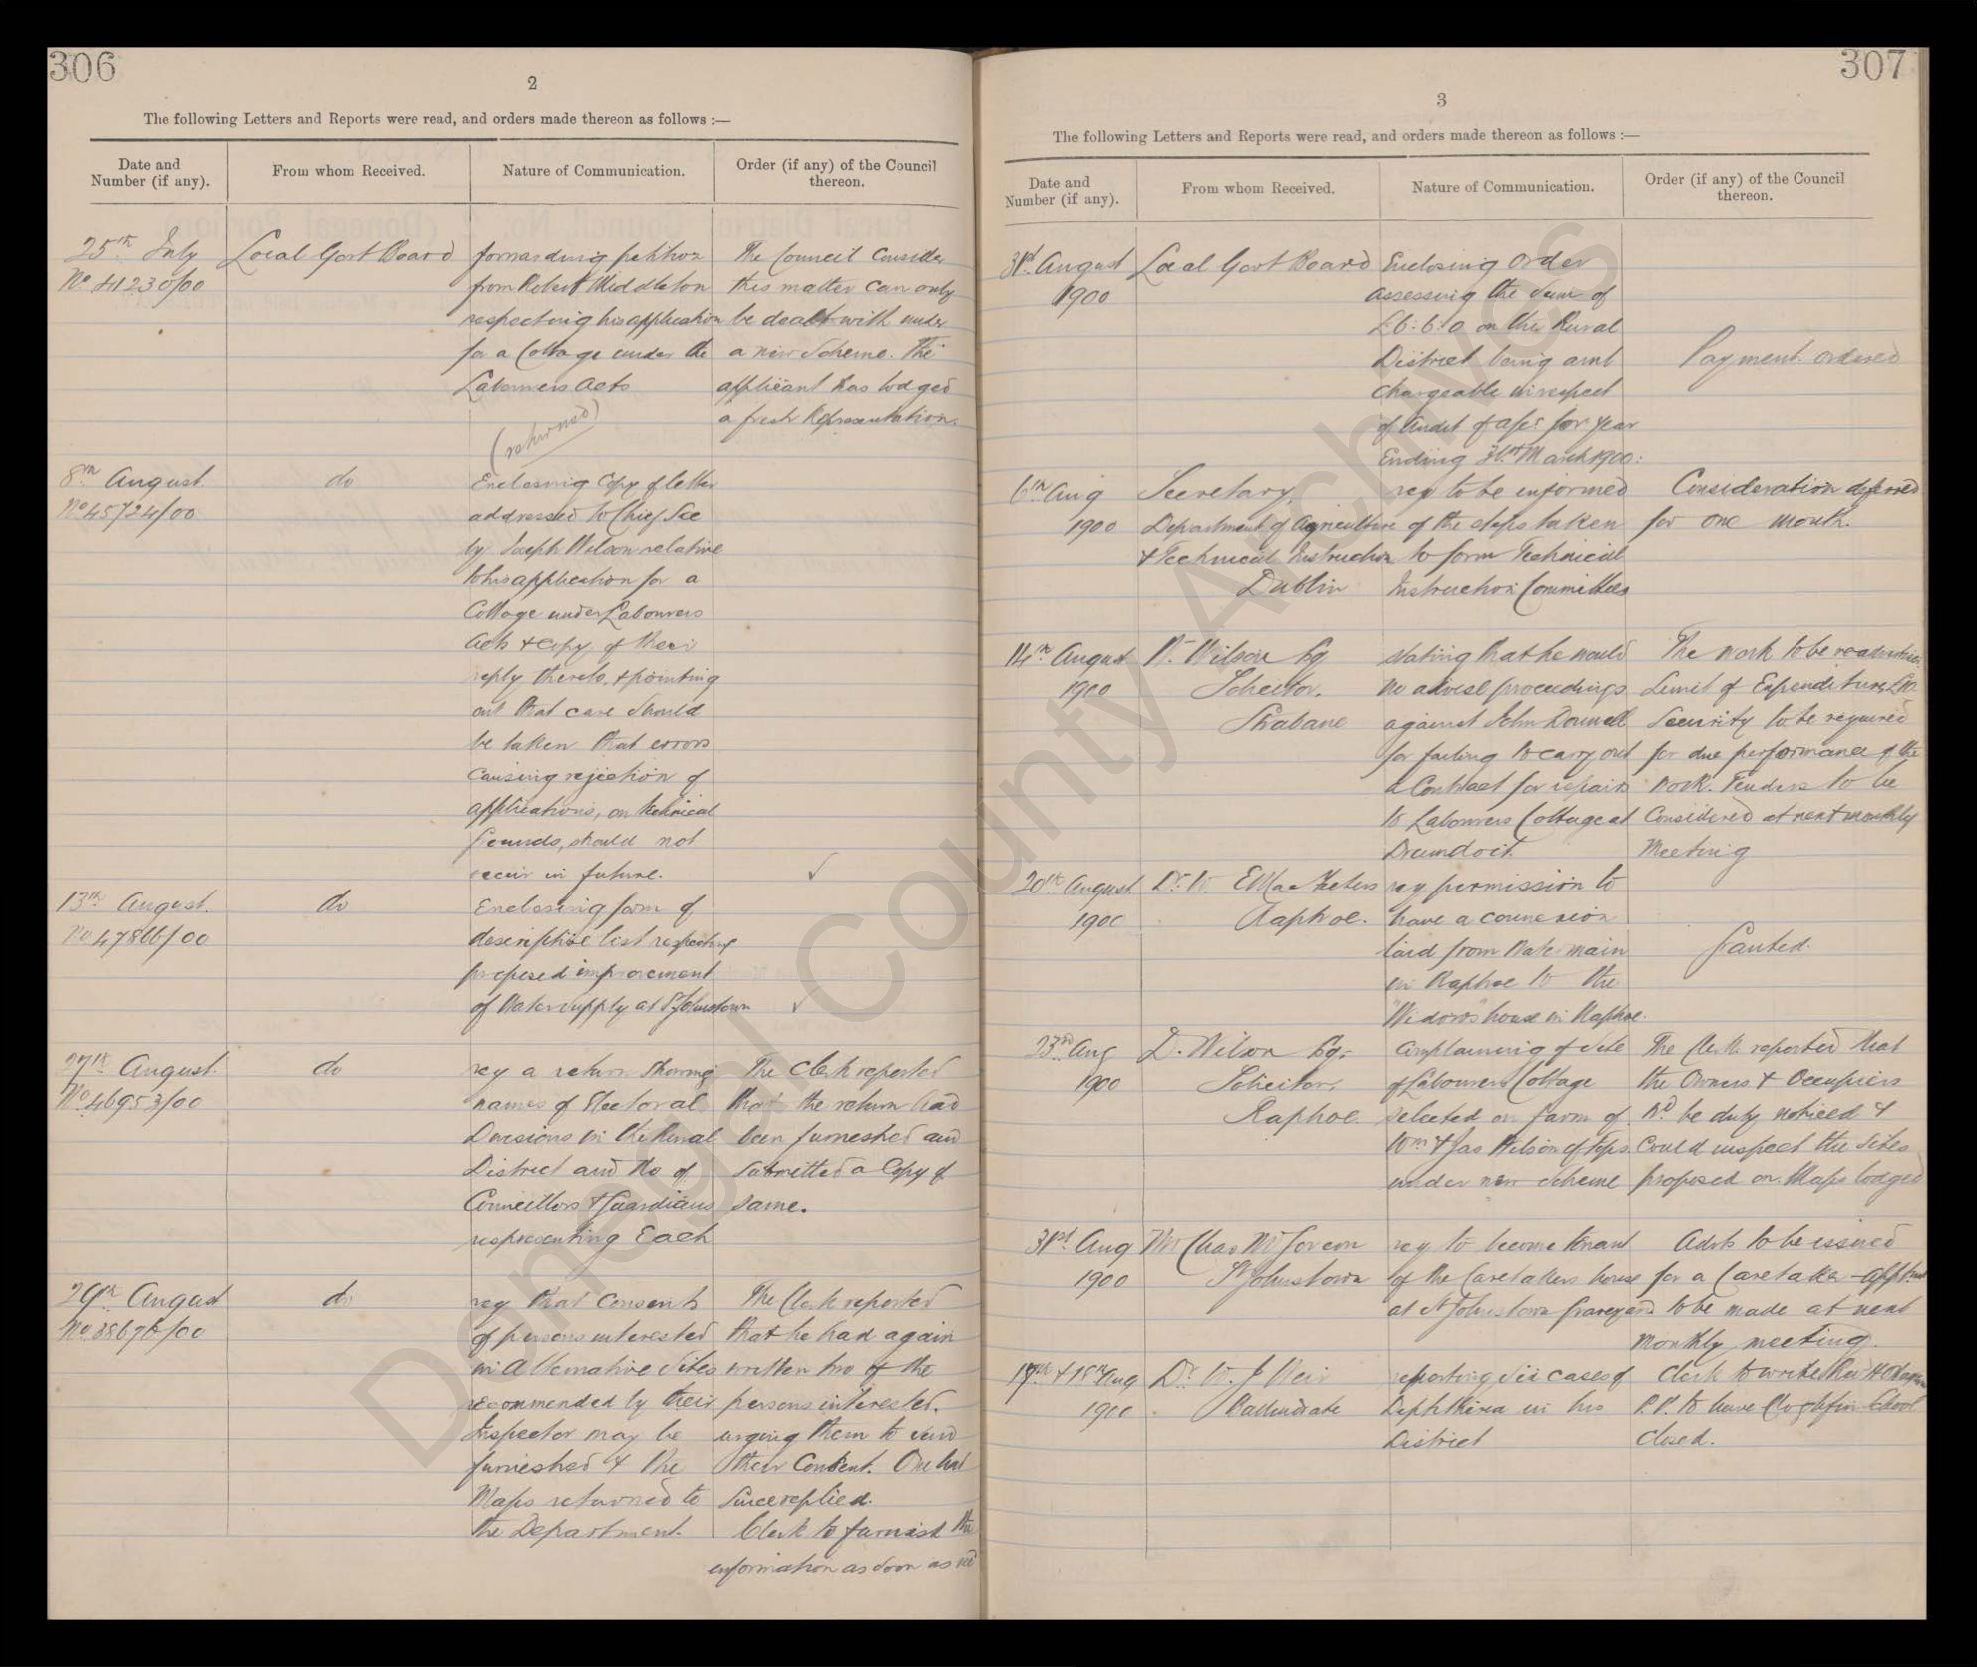 306
2
The following Letters and Reports were read, and orders made thereon as follows :—
Date and Number (if any).
From whom Received.
Nature of Communication.
Order (if any) of the Council thereon.
25th July
No 41230/00
Local Govt Board
forwarding petition
from Robert Middleton
respecting his application
for a Cottage under the
Labourers Acts
(returned)
The Council Consider
this matter can only
be dealt with under
a new Scheme. The
applicant has lodged
a fresh Representation.
8th August
No 45724/00
do
Enclosing Copy of letter
addressed to Chief Sec
by Joseph Wilson relative
to his application for a
Cottage under Labourers
Acts & copy of their
reply thereto, & pointing
out that care should
be taken that errors
causing rejection of
applications, on technical
grounds, should not
occur in future.
✓
13th August.
No 47866/00
do
Enclosing form of
descriptive list respecting
proposed improvement
of Water supply at St Johnstown
✓
27th August.
No 46953/00
do
req a return showing
names of Electoral
Divisions in the Rural
District and No of
Councillors & Guardians
representing Each
The Clerk reported
that the return had
been furnished and
submitted a Copy of
same.
29th August
do
req that Consents
of persons interested
in Alternative Sites
recommended by their
Inspector may be
furnished & the
Maps returned to
the Department.
The Clerk reported
that he had again
written two of the
persons interested.
urging them to send
their Consent. One had
since replied.
Clerk to furnish the
information as soon as recd
307
3
The following Letters and Reports were read, and orders made thereon as follows :—
Date and Number (if any).
From whom Received.
Nature of Communication.
Order (if any) of the Council thereon.
31st August
1900
Local Govt Board
Enclosing Order
assessing the sum of
£6:6:0 on the Rural
District being amt
chargeable in respect
of Audit of a/cs for year
Ending 31st March 1900:
Payment ordered
6th Aug
1900
Secretary,
Department of Agriculture
& Technical Instruction
Dublin
req to be informed
of the steps taken
to form Technical
Instruction Committees
Consideration deferred
for one month.
14th August
1900
W. Wilson Esq
Solicitor.
Strabane
stating that he would
no advise proceedings
against John Donnell
for failing to carry out
a Contract for repairs
to Labourers Cottage at
Drumdoit
The work to be readvertised
Limit of Expenditure £10
Security to be required
for due performance of the
work. Tenders to be
Considered at next monthly
Meeting
20th August
1900
Raphoe.
req permission to
have a connexion
laid from Water main
in Raphoe to the
"Widows" house in Raphoe.
Granted.
23rd Aug
1900
D. Wilson Esq.
Solicitor
Raphoe
Complaining of site
of Labourers Cottage
selected on farm of
Wm & Jas Wilson of Tops
under new scheme
The Clerk reported that
the Owners & Occupiers
wd be duly noticed &
Could inspect the Sites
proposed on Maps lodged
31st Aug
1900
St Johnstown
req to become tenant
of the Caretakers house
at St Johnstown Graveyard
Advts to be issued
for a Caretaker – Apptmt
to be made at next
monthly meeting.
17th & 18th Aug
1900
Dr. W. J Weir
reporting six cases of
Diphtheria in his
District
P.P. to have Cloghfin School
closed.
Donegal County Archives